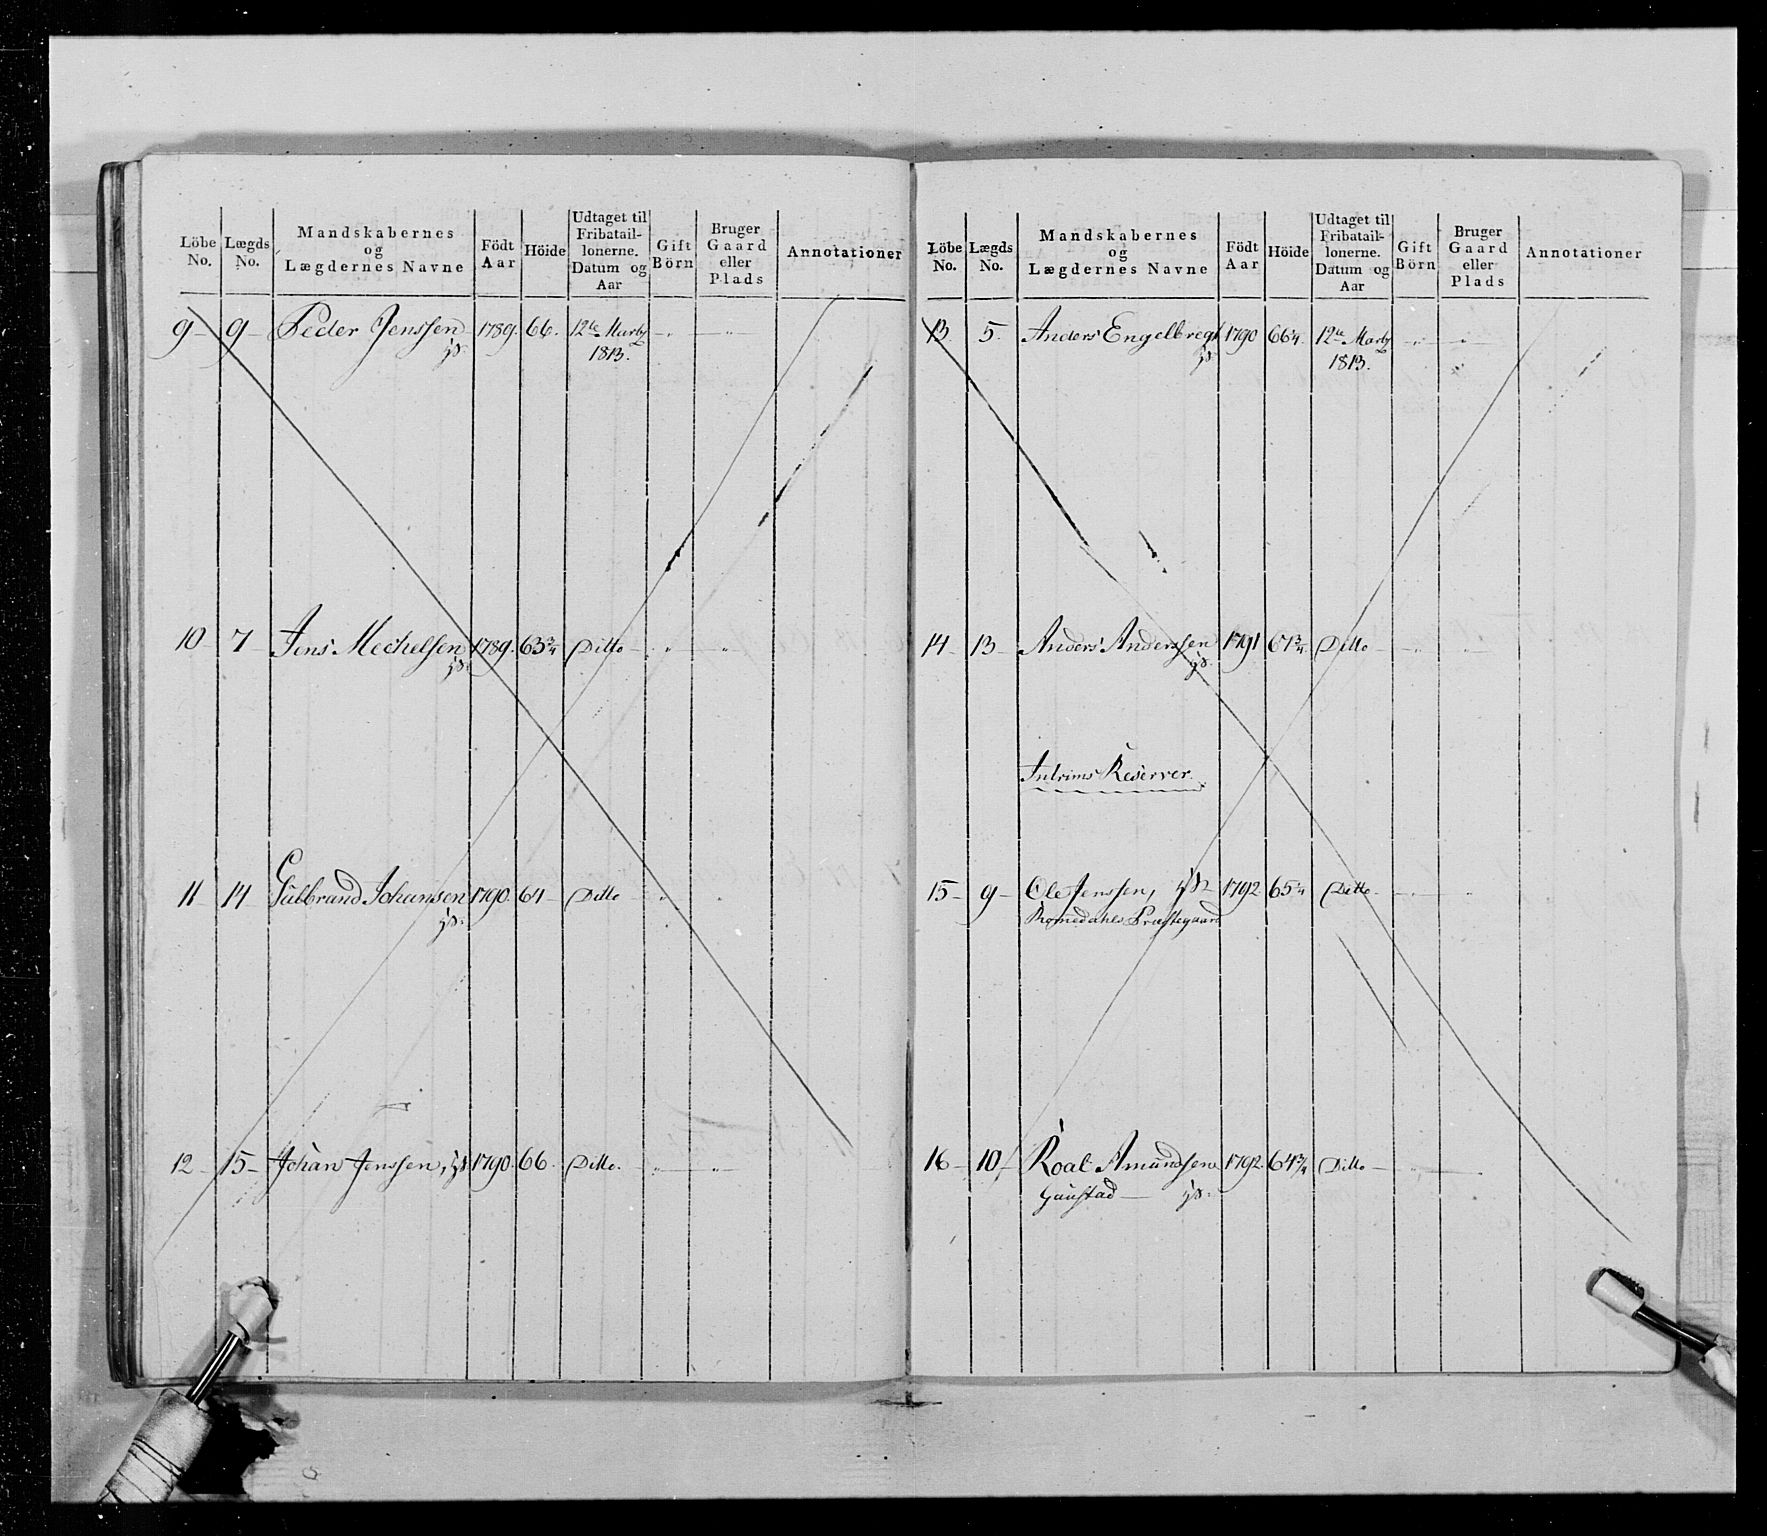 Löbe No. Lægds No. Mandskabernes og Lægdernes Navne Födt Aar Höide Udtaget til Fribataillonerne. Datum og Aar Gift Börn Bruger Gaard eller Plads Annotationer
9 – 9 – Peder Jenssen 1789. 66. 12te Marty
1813.
10 7 – Jens Mechelsen 1789. 63¾ Ditto –
11 14 Gulbrand Johansen 1790. 64 – Ditto
12 – 15 – Johan Jenssen, 1790. 66. Ditto.
Löbe No. Lægds No. Mandskabernes og Lægdernes Navne Födt Aar Höide Udtaget til Fribataillonerne. Datum og Aar Gift Börn Bruger Gaard eller Plads Annotationer
13. 5. Anders Engelbregt 1790 66¼. 12te Marty
1813.
14 – 13 – Anders Anderssen 1791 67¾. Ditto –
Intrims Reserver.
15 – 9 – Ole Jenssen, 1792 65¼ Ditto –
Romedahls Præstegaard
16 – 10 – Roal Amundsen 1792. 64¾ Ditto –
Gaustad –